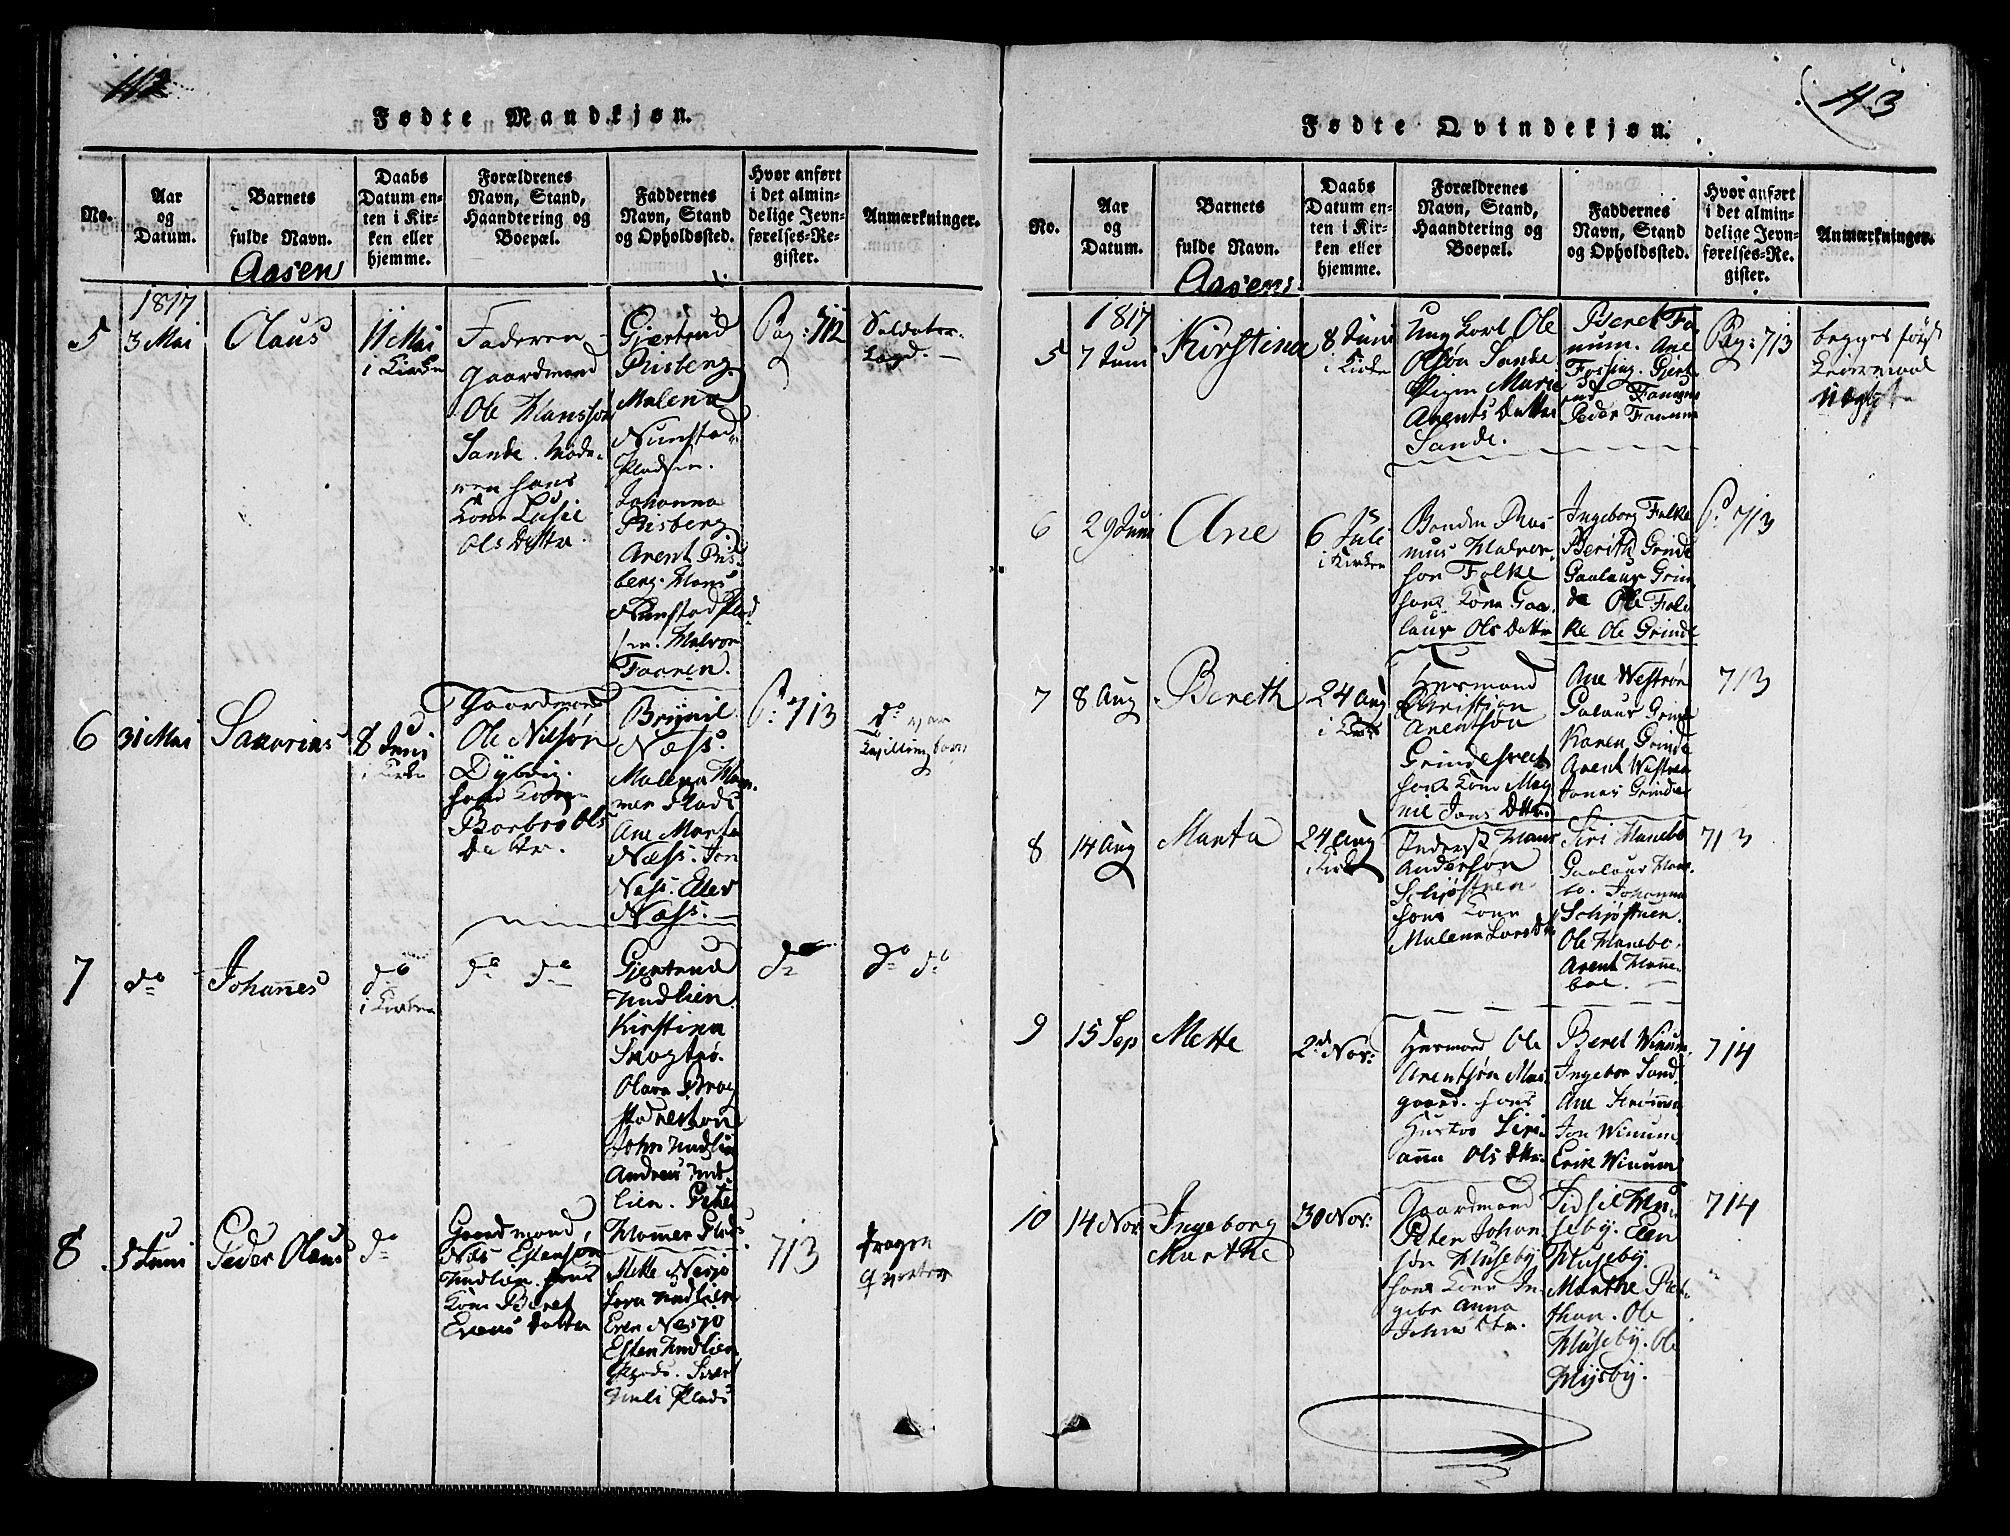 112
Fødte Mandkjøn.
No.
Aar
og
Datum.
Barnets
fulde Navn.
Aasen
Daabs
Datum en-
ten i Kir-
ken eller
hjemme.
Forældrenes
Navn, Stand,
Haandtering og
Boepæl.
Faddernes
Navn, Stand
og Opholdssted.
Hvor anført
i det almin-
delige Jevn-
førelses-Re-
gister.
Anmærkninger.
1817
5
3 Mai
Olaus
11 Mai
i Kirken
Faderen
Gaardmand
Ole Hansson
Sande. Mode-
ren hans
Kone
Ols Dotter.
Gjertrud
Risberg.
Malena
Nunstad-
Pladsen.
Johanna
Risberg.
Arent Ris-
berg. Hans
Nunstad Plad-
sen. Halvor
Faaren.
Pag: 712
Soldater-
Lægd.
6
31 Mai
Sacarias
8 Juni
i Kirken
Gaardmand
Ole Nilsøn
Dybvig.
hans Kone
Barbro Ols
Datter.
Brynil
Næss.
Malena Ham-
mer Plads
Ane Marta
Næss. Jon
Næss. Elev
Næss.
P. 713
do
Tvillingbørn
7
do
Johañes
do
i Kirken
do do
Gjertrud
Hudlien.
Kirstina
Skogtrø.
Olava
John Hudlien
Andreas Hud-
lien. Peter
Hammer Plads.
do
do do
8
5 Juni
Peder Olaus
do
Gaardmand
Nils Estensøn
Hudlien. hans
Kone Beret
Evens Datter
Mette Nesjo
Sara Hudlien
Even Nesjo
Esten Hudlien
Plads. Siver
Plads
713
43
Fødte Qvindekjøn.
No.
Aar
og
Datum.
Barnets
fulde Navn.
Aasens
Daabs
Datum en-
ten i Kir-
ken eller
hjemme.
Forældrenes
Navn, Stand,
Haandtering og
Boepæl.
Faddernes
Navn, Stand
og Opholdssted.
Hvor anført
i det almin-
delige Jevn-
førelses-Re-
gister.
Anmærkninger.
1817
5
7 Juni
Kirstina
8 Juni
i Kirke
Ung Karl Ole
Olson Sande.
Pigen Marie
Arents Datter
Sande.
Beret Fa-
num. Ane
Fossing. Gjert-
rud Fanum
Peder Fanum
Pag: 713
begges første
Leiermaal
6
29 Juni
Ane
6 Juli
i Kirken
Bonden Ras-
mus Halvor-
son Falke
hans Kone Gaa-
laug Ols Datter
Ingeborg Falke
Berith Grinde
Gaalaug Grin-
de Ole Fal-
ke Ole Grinde
P. 713
7
8 Aug
Bereth
24 Aug
i Kirke
Huusmand
Christian
Arentson
Grindesveet
hans Kone Mag-
nil Jons Dttr.
Ane Westrøn
Galaug Grinde
Karen Grinde
Arent Westrøn
Jonas Grinde
713
8
14 Aug
Marta
24 Aug
i Kirke
Hans
Andersøn
Schjøstuen
hans Kone
Malena Lars Dtr
Siri Hanebo
Gaalaug Hane-
bo. Johanna
Schjøstuen.
Ole Hanebo.
Arent Hane-
boe.
713
9
15 Sep
Mette
2d Nov:
Huusmand Ole
Arentsøn
gaard. hans
Hustro Siri-
aña Ols Dttr.
Beret Winum.
Ingebor Sand.
Ane Strømmen
Jon Winum.
Erik Winum
714
10
14 Nov:
Ingeborg
Marthe
30 Nov:
Gaardmand
Peter Johan-
søn Husebÿ
hans Kone In-
gebr Anna
Johns Dtr.
Sidsil Hu-
sebÿ. Elen
Husebÿ.
Marthe
Ole
Husebÿ. Ole
Husbÿ.
714